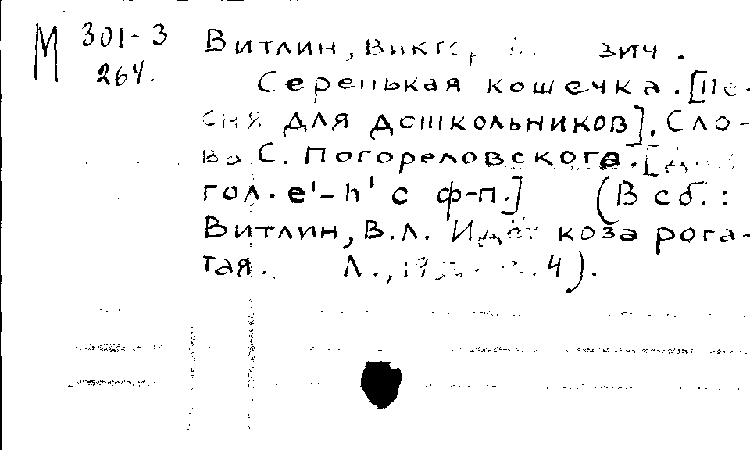 М 301-3 Витлин,
264. Серенькая кошечка. [Пе-
сня для дошкольников]. Сло-
ва С. Погореловского. [Для
гол. e'-h' с ф-п.] (В сб.:
Витлин, В.Л. Идёт коза рога-
тая. Л., 4).